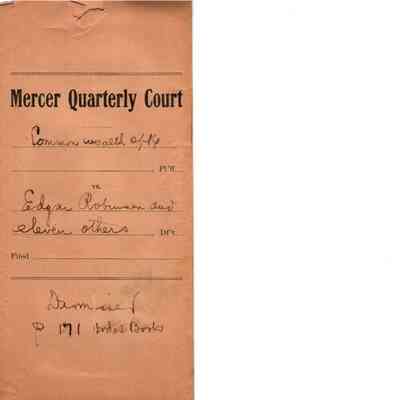 Mercer Quarterly Court
Common wealth of Ky
Pl'ff.
vs.
Edgar Robinson and
eleven others Df't.
Filed
Dismissed
P 171 Book